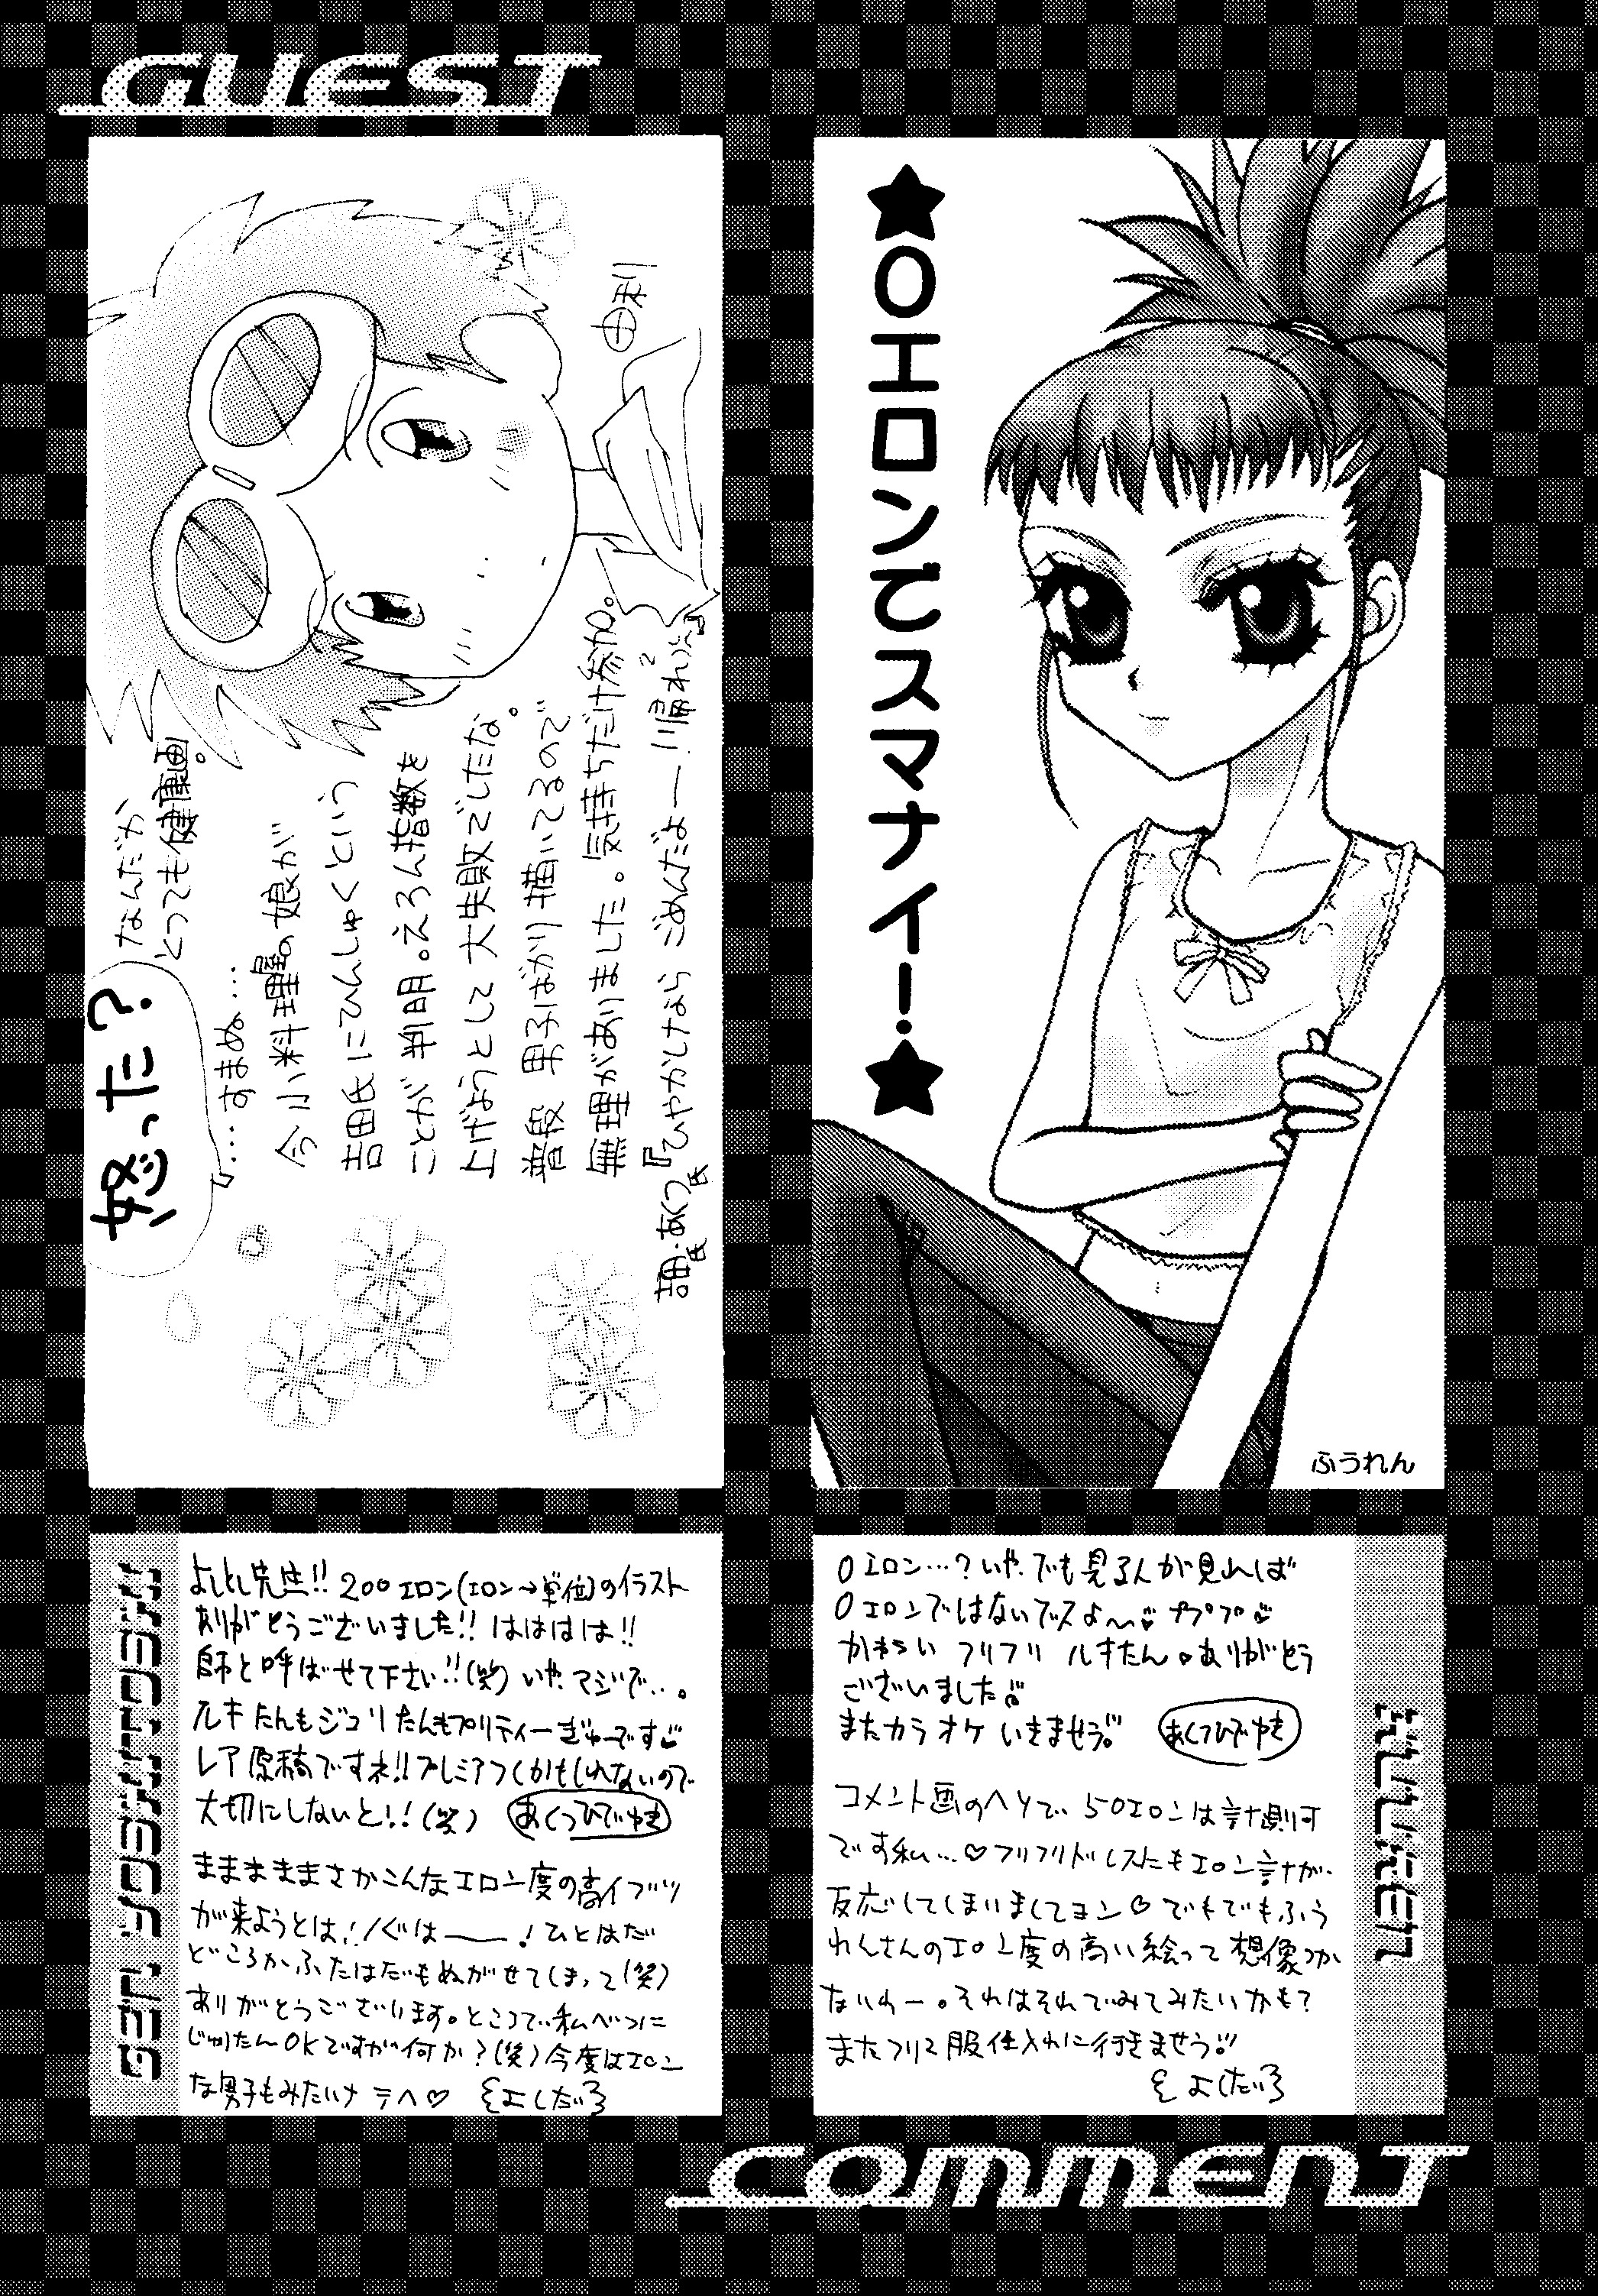 GUEST
★0エロンでスマナイー!★
ふうれん
怒った?
なんだか
とっても健康画。
『……すまぬ…
今小料理屋の娘が
吉田氏にひんしゅくという
ことが判明。えろん指数を
上げようとして大失敗でしたな。
普段男子ばかり描いてるので
無理がありました。気持ちだけ参加。
『ひやかしなら ごめんだよー!!帰れっ』
0エロン…?いや、でも見る人が見れば
0エロンではないでスよ〜 ププププ
かわいい フリフリ ルキたん ありがとう
ございました
またカラオケいきませう。 あくつひでゆき
コメント画のヘソで、50エロンは計測可
です私…♡フリフリドレスにもエロン計が
反応してしまいましてヨン♡でもでもふう
れんさんのエロン度の高い絵って想像つか
ないわー。それはそれでみてみたいかも?
またフリフリ服仕入れに行きませう!!
よしだ
よしとし先生!! 200エロン(エロン→単位)のイラスト
ありがとうございました!! はははは!!
師と呼ばせて下さい!!(笑) いや、マジで…。
ルキたんもジュリたんもプリティーぎゅーです
レア原稿ですネ!! プレミアつくかもしれないので
大切にしないと!!(笑) あくつひでゆき
まままままさかこんなエロン度の高イブツ
が来ようとは!ぐは——!ひとはだ
どころか、ふたはだもぬがせてしまって(笑)
ありがとうございます。ところで、私べつに
じゅりたんOKですが何か?(笑)今度はエロン
な男子もみたいナ テヘ♡ よしだ
COMMENT